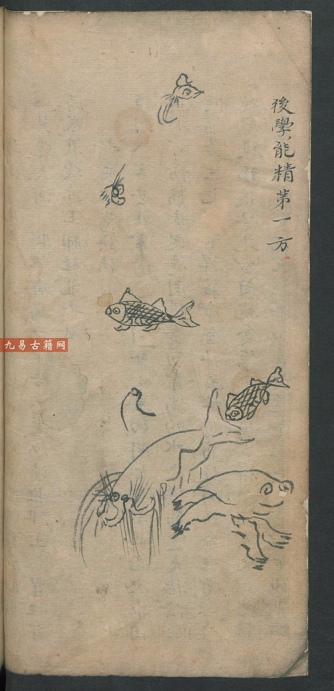 後學能精第一方
九易古籍网